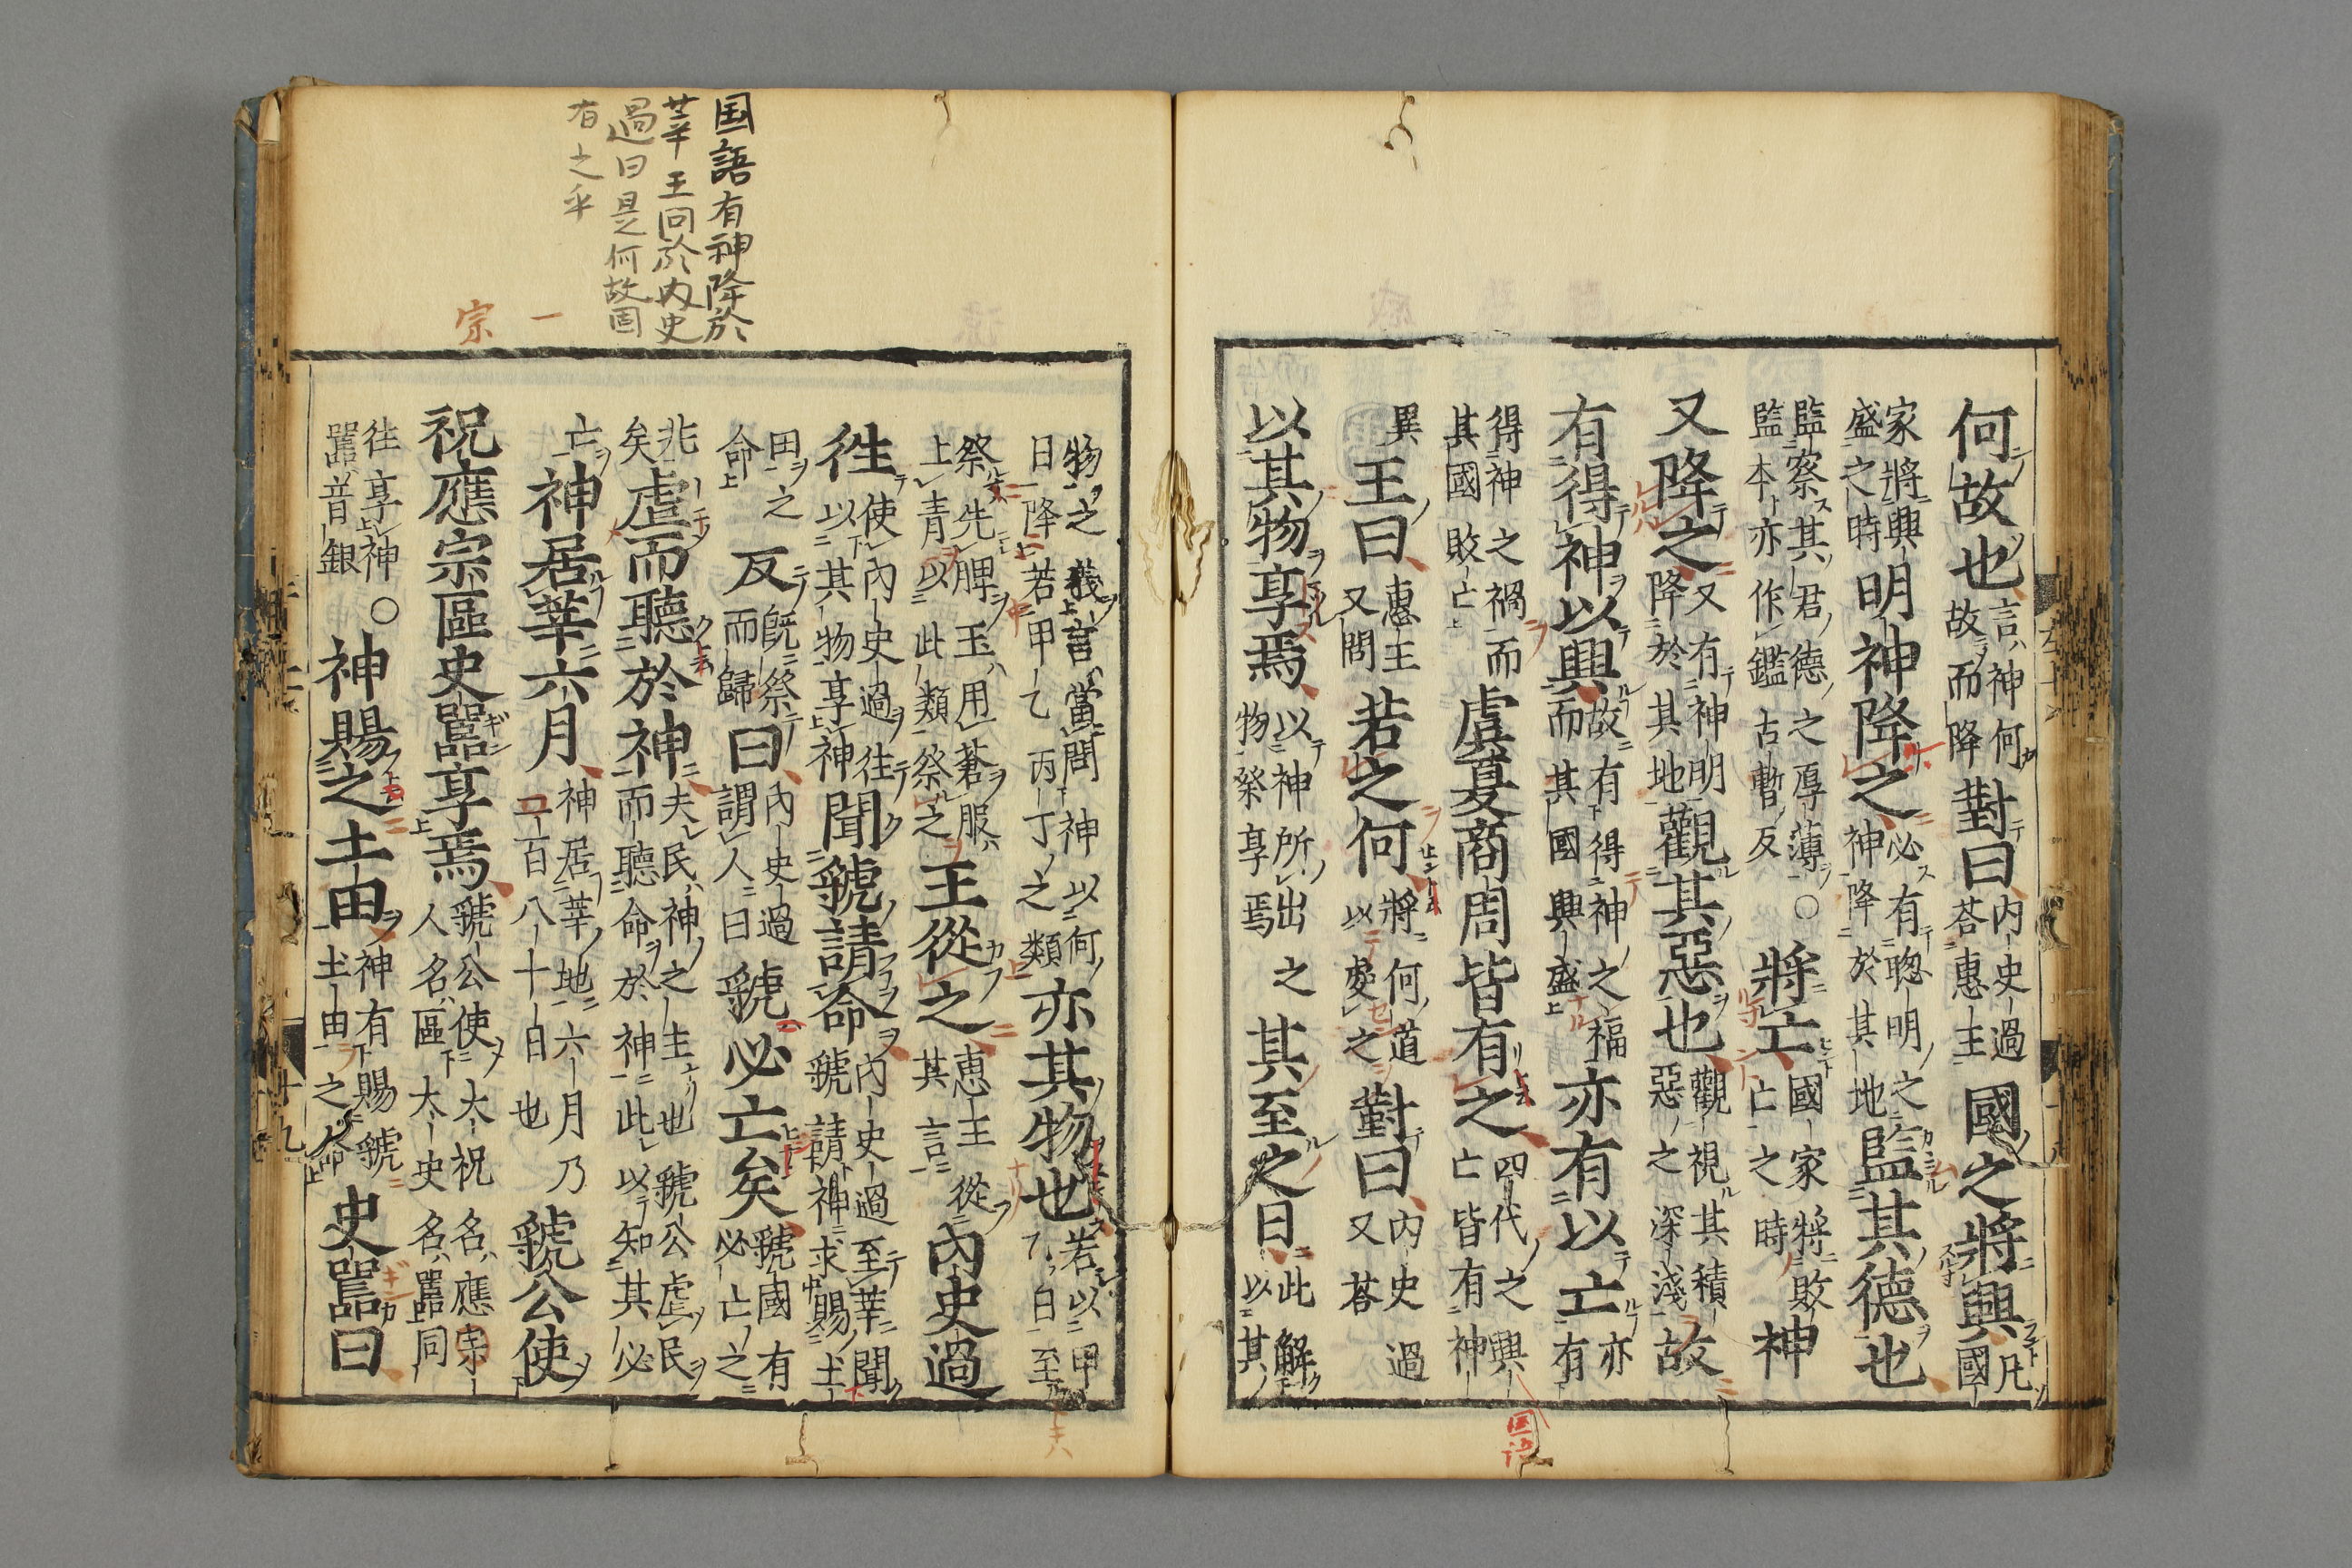 何故也言神何故而降對曰内史過荅惠王國之將興凡國
家將興盛之時明神降之必有聰明之神降於其地監其德也
監察其君德之厚薄○監本亦作鑑古暫反將亡國家將敗亡之時神
又降之又有神明降於其地觀其惡也觀視其積惡之深淺故
有得神以興故有得神之福而其國興盛亦有以亡亦有
得神之禍而其國敗亡虞夏商周皆有之四代之興亡皆有神
異王曰惠王又問若之何將何道以處之對曰内史過又荅
以其物享焉以神所出之物祭享焉其至之日此解以其
国語
国語有神降於
莘王问於内史
過曰是何故固
有之乎
一
宗
物之義言當問神以何日降若甲乙丙丁之類亦其物也若以甲乙日至
祭先脾玉用蒼服上青以此類祭之王從之惠王從其言內史過
徃使內史過往以其物享神聞虢請命內史過至莘聞虢請神求賜土
田之命反既祭而歸曰內史過謂人曰虢必亡矣虢國有必亡之
兆矣虐而聽於神夫民神之主也虢公虐民而聽命於神此以知其必
亡神居莘六月神居莘地六月乃一百八十日也虢公使
祝應宗區史嚚享焉虢公使大祝名應宗人名區大史名嚚同
往享神○嚚音銀神賜之土由神有賜虢土由之命史嚚曰